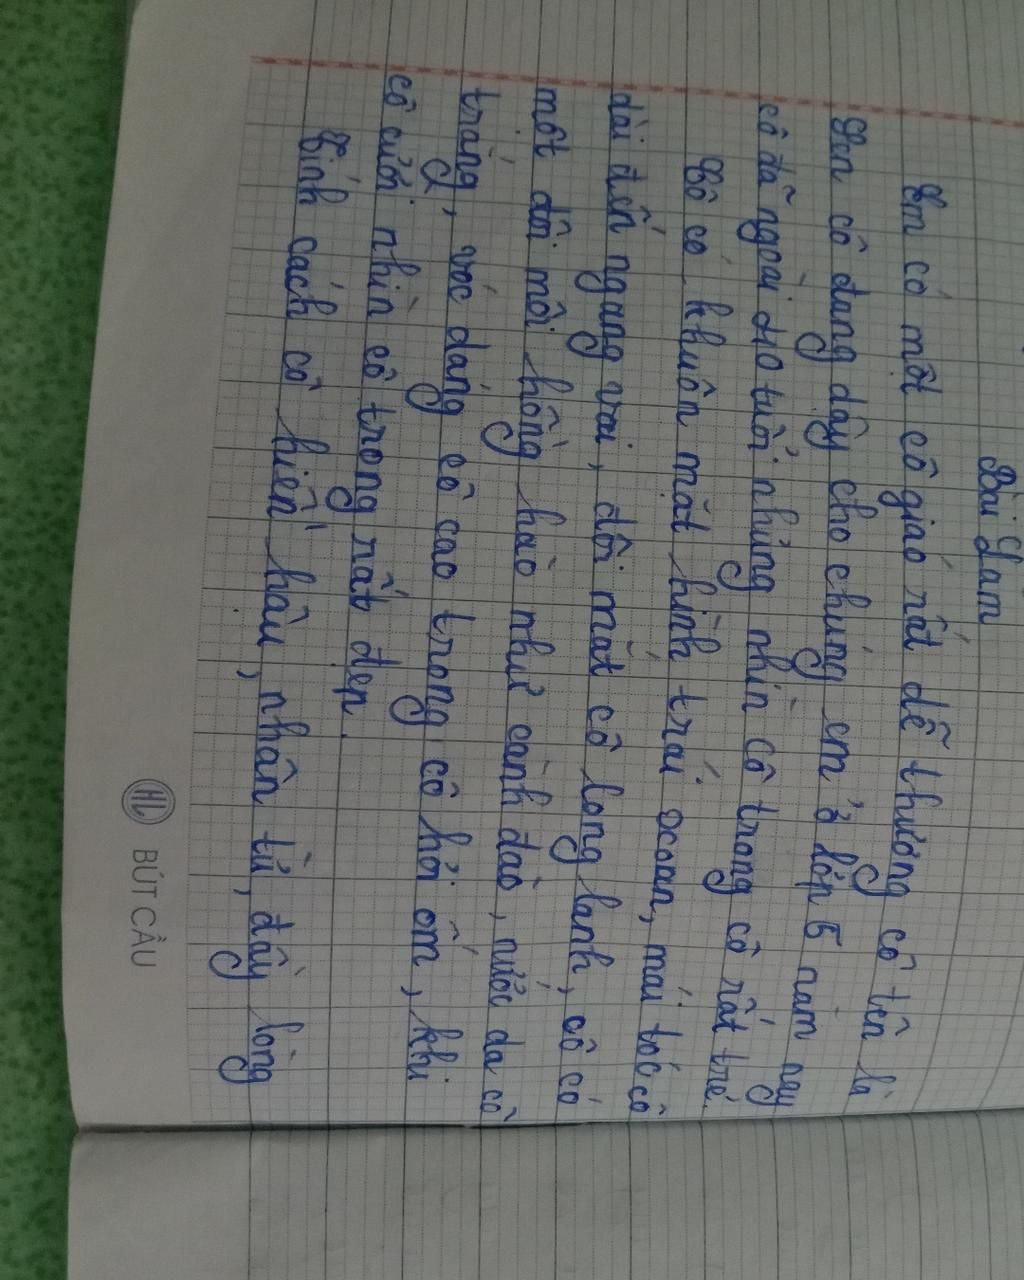 Bài làm
Em có một cô giáo rất dễ thương cô tên là
cô đang dậy cho chúng em ở lớp 5 năm nay
cô đã ngoài 40 tuổi nhưng nhìn cô trong cô rất trẻ.
Cô có khuôn mặt hình trái xoan, mái tóc cô
dài đến ngang vai, đôi mắt cô long lanh, cô có
một đôi môi hồng hào như cành đào, nước da cô
trắng, vóc dáng cô cao trong cô hơi ốm, khi
cô cười nhìn cô trong rất đẹp.
Tính cách cô hiền hậu, nhân từ, đầy lòng
BÚT CẦU